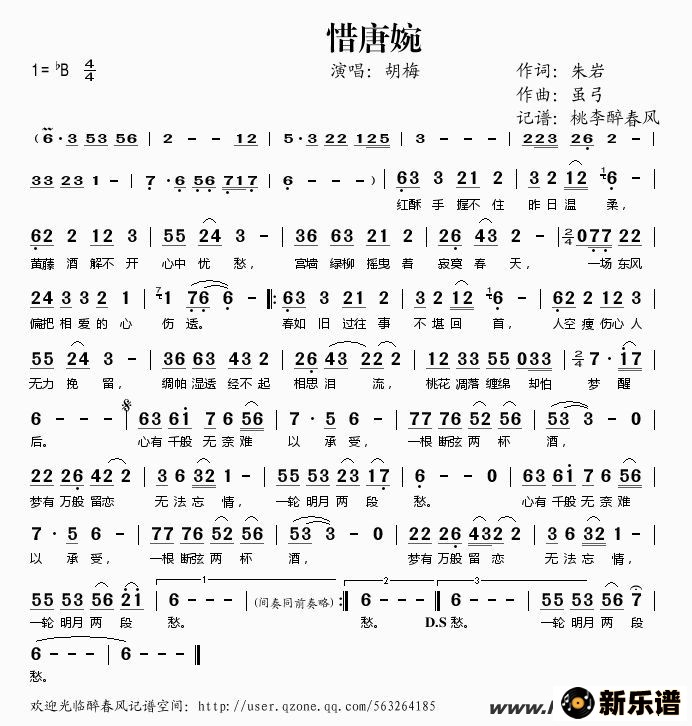 惜唐婉
1=♭B 4/4
演唱：胡梅
作词：朱岩
作曲：虽弓
记谱：桃李醉春风
(6·3 53 56 | 2 - - 12 | 5·3 53 22 125 | 6 - - - | 223 26 2 -
33 23 1 - | 7 ·6 56 717 | 6 - - -) | 63 3 21 2 | 3 2 12 16 -
红酥 手 握不 住 昨 日 温 柔，
62 2 12 3 | 55 24 3 - | 36 63 21 2 | 26 43 2 - | 2/4 077 22
黄藤 酒 解不 开 心中 忧 愁， 宫墙 绿柳 摇曳 着 寂寞 春 天， 一场 东风
24 3 3 2 1 | 71 76 6 - ‖: 63 3 21 2 | 3 2 12 16 - | 62 2 12 3
偏把 相 爱 的 心 伤 透。 春如 旧 过往 事 不 堪 回 首， 人空 瘦 伤心 人
55 24 3 - | 36 63 43 2 | 26 43 22 2 | 12 33 55 033 | 2/4 7· 17
无力 挽 留， 绸帕 湿透 经不 起 相思 泪 流， 桃花 凋落 缠绵 却怕 梦 醒
6 - - - | 63 61 7 6 56 | 7 · 5 6 - | 77 76 52 56 | 53 3 - 0
后。 心有 千般 无 奈 难 以 承 受， 一根 断弦 两 杯 酒，
22 26 42 2 | 3 6 32 1 - | 55 53 23 17 | 6 - - 0 | 63 61 7 6 56
梦有 万般 留恋 无 法 忘 情， 一轮 明月 两 段 愁。 心有 千般 无 奈 难
7 · 5 6 - | 77 76 52 56 | 53 3 - 0 | 22 26 432 2 | 3 6 32 1 -
以 承 受， 一根 断弦 两 杯 酒， 梦有 万般 留 恋 无 法 忘 情，
1 2 3
55 53 56 21 | 6 - - - | (间奏同前奏略) :‖ 6 - - - ‖ 6 - - - | 55 53 56 7
一轮 明月 两 段 愁。 愁。 D.S 愁。 一轮 明月 两 段
6 - - - | 6 - - - ‖
愁。
欢迎光临醉春风记谱空间：http://user.qzone.qq.com/563264185
www.
新乐谱